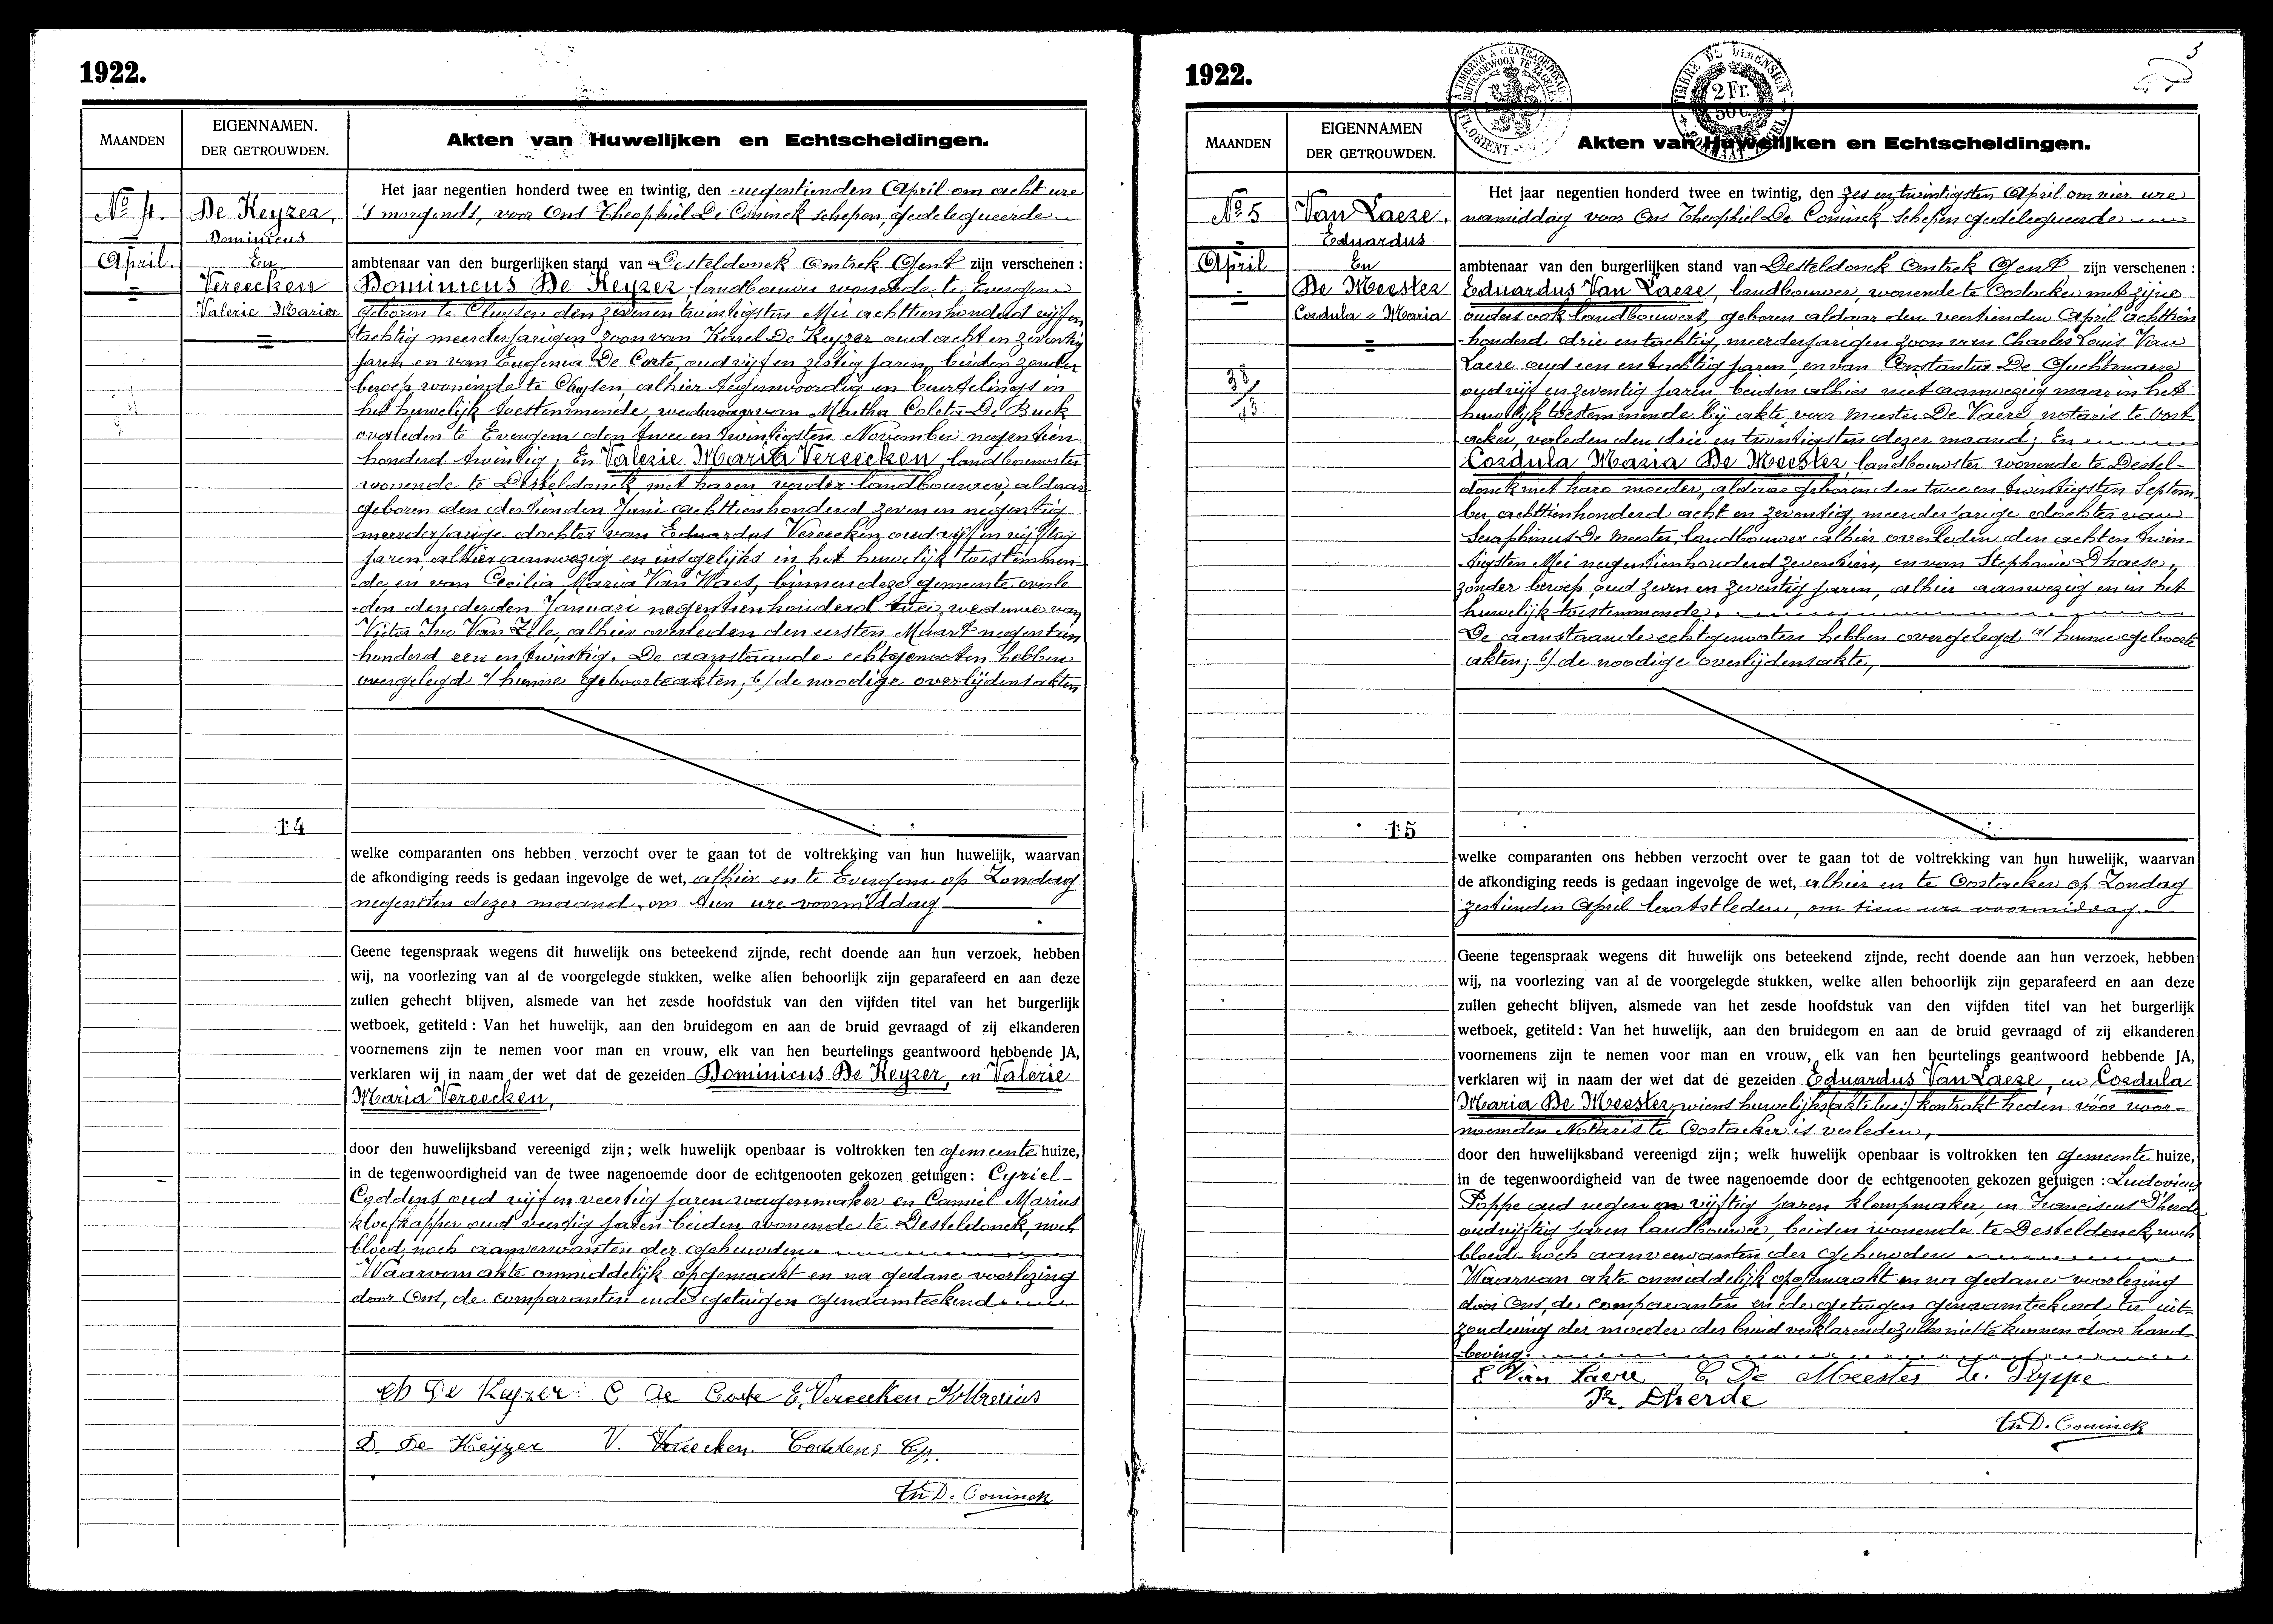 1922.
MAANDEN
EIGENNAMEN.
DER GETROUWDEN.
Akten van Huwelijken en Echtscheidingen.
No 4.
April.
De Keyzer,
Dominicus
En
Vereecken
Valerie Maria
Het jaar negentien honderd twee en twintig, den negentienden April om acht ure
's morgends, voor Ons Theophiel De Coninck schepen, gedelegueerde
ambtenaar van den burgerlijken stand van Desteldonck Omtrek Gent zijn verschenen :
Dominicus De Keyzer, landbouwer wonende te Evergem
geboren te Cluysen den zevenentwintigsten Mei achttienhonderd vijfen
tachtig meerderjarigen zoon van Karel De Keyzer oud acht en zeventig
jaren en van Eugenia De Corte, oud vijf en zestig jaren, beiden zonder
beroep wonende te Cluysen, alhier tegenwoordig en beurtelings in
het huwelijk toestemmende, weduwaar van Martha Coleta De Buck
overleden te Evergem den twee en twintigsten November negentien
honderd twintig; En Valerie Maria Vereecken, landbouwster
wonende te Desteldonck met haren vader landbouwer, aldaar
geboren den dertienden Juni achttienhonderd zeven en negentig
meerderjarige dochter van Eduardus Vereecken oud vijf en vijftig
jaren, alhier aanwezig en insgelijks in het huwelijk toestemmen-
de, en van Cecilia Maria Van Waes, binnen deze gemeente overle
-den den derden Januari negentienhonderd twee, weduwe van
Victor Ivo Van Zele, alhier overleden den eersten Maart negentien
honderd een en twintig. De aanstaande echtgenooten hebben
overgelegd a/ hunne geboorteakten, b/ de noodige overlijdensakten
14
welke comparanten ons hebben verzocht over te gaan tot de voltrekking van hun huwelijk, waarvan
de afkondiging reeds is gedaan ingevolge de wet, alhier en te Evergem op Zondag
negensten dezer maand, om tien ure voormiddag
Geene tegenspraak wegens dit huwelijk ons beteekend zijnde, recht doende aan hun verzoek, hebben
wij, na voorlezing van al de voorgelegde stukken, welke allen behoorlijk zijn geparafeerd en aan deze
zullen gehecht blijven, alsmede van het zesde hoofdstuk van den vijfden titel van het burgerlijk
wetboek, getiteld : Van het huwelijk, aan den bruidegom en aan de bruid gevraagd of zij elkanderen
voornemens zijn te nemen voor man en vrouw, elk van hen beurtelings geantwoord hebbende JA,
verklaren wij in naam der wet dat de gezeiden Dominicus De Keyzer, en Valerie
Maria Vereecken,
door den huwelijksband vereenigd zijn ; welk huwelijk openbaar is voltrokken ten gemeente huize,
in de tegenwoordigheid van de twee nagenoemde door de echtgenooten gekozen getuigen : Cyriel
Coddens oud vijf en veertig jaren wagenmaker en Camiel Marius
kloefkapper oud veertig jaren beiden wonende te Desteldonck, noch
bloed, noch aanverwanten der gehuwden.
Waarvan akte onmiddelijk opgemaakt en na gedane voorlezing
door Ons, de comparanten ende getuigen genaamteekend.
De Keyzer C De Corte E. Vereecken K Marius
D. De Keijzer V. Vereecken Coddens Cy.
Th D. Coninck
1922.
A TIMBRER A L'EXTRAORDINAIRE
2 Fr.
50 C.
TIMBRE DE DIMENSION
MAANDEN
EIGENNAMEN
DER GETROUWDEN.
Akten van Huwelijken en Echtscheidingen.
No 5
April
38
/
43
Van Laere,
Eduardus
En
De Meester
Cordula Maria
Het jaar negentien honderd twee en twintig, den zes en twintigsten April om vier ure
namiddag voor Ons Theophiel De Coninck schepen gedelegueerde
ambtenaar van den burgerlijken stand van Desteldonck Omtrek Gent zijn verschenen :
Eduardus Van Laere, landbouwer, wonende te Oostacker met zijne
ouders ook landbouwers, geboren aldaar den veertienden April achttien
honderd drie en tachtig, meerderjarigen zoon van Charles Louis Van
Laere oud een en tachtig jaren en van Constantia De Guchtenaere
oud vijf en zeventig jaren beiden alhier niet aanwezig maar in het
huwelijk toestemmende bij akte, voor meester De Vaere, notaris te Oost-
acker, verleden den drie en twintigsten dezer maand; En
Cordula Maria De Meester, landbouwster wonende te Destel-
donck met hare moeder, aldaar geboren den twee en twintigsten Septem
ber achttienhonderd acht en zeventig, meerderjarige dochter van
Seraphinus De Meester, landbouwer alhier overleden den achten twin
tigsten Mei negentienhonderd zeventien, en van Stephanie Dhaese,
zonder beroep, oud zeven en zeventig jaren, alhier aanwezig en in het
huwelijk toestemmende.
De aanstaande echtgenooten hebben overgelegd a/ hunne geboorte
akten; b/ de noodige overlijdensakte,
15
welke comparanten ons hebben verzocht over te gaan tot de voltrekking van hun huwelijk, waarvan
de afkondiging reeds is gedaan ingevolge de wet, alhier en te Oostacker op Zondag
zestienden April laatstleden, om tien ure voormiddag.
Geene tegenspraak wegens dit huwelijk ons beteekend zijnde, recht doende aan hun verzoek, hebben
wij, na voorlezing van al de voorgelegde stukken, welke allen behoorlijk zijn geparafeerd en aan deze
zullen gehecht blijven, alsmede van het zesde hoofdstuk van den vijfden titel van het burgerlijk
wetboek, getiteld : Van het huwelijk, aan den bruidegom en aan de bruid gevraagd of zij elkanderen
voornemens zijn te nemen voor man en vrouw, elk van hen beurtelings geantwoord hebbende JA,
verklaren wij in naam der wet dat de gezeiden Eduardus Van Laere, en Cordula
Maria De Meester, wiens huwelijks (akte lees:) kontrakt heden vóór voor-
noemden Notaris te Oostacker is verleden,
door den huwelijksband vereenigd zijn ; welk huwelijk openbaar is voltrokken ten gemeente huize,
in de tegenwoordigheid van de twee nagenoemde door de echtgenooten gekozen getuigen : Ludovicus
Poppe oud negen en vijftig jaren klompmaker, en Franciscus D'herde
oud vijftig jaren landbouwer, beiden wonende te Desteldonck, noch
bloed- noch aanverwanten der gehuwden
Waarvan akte onmiddelijk opgemaakt en na gedane voorlezing
door Ons, de comparanten en de getuigen genaamteekend ter uit-
zondering der moeder der bruid verklarende zulks niet te kunnen door hand
beving.
E Van Laere C. De Meester L. Poppe
Fr. Dherde
Th D. Coninck